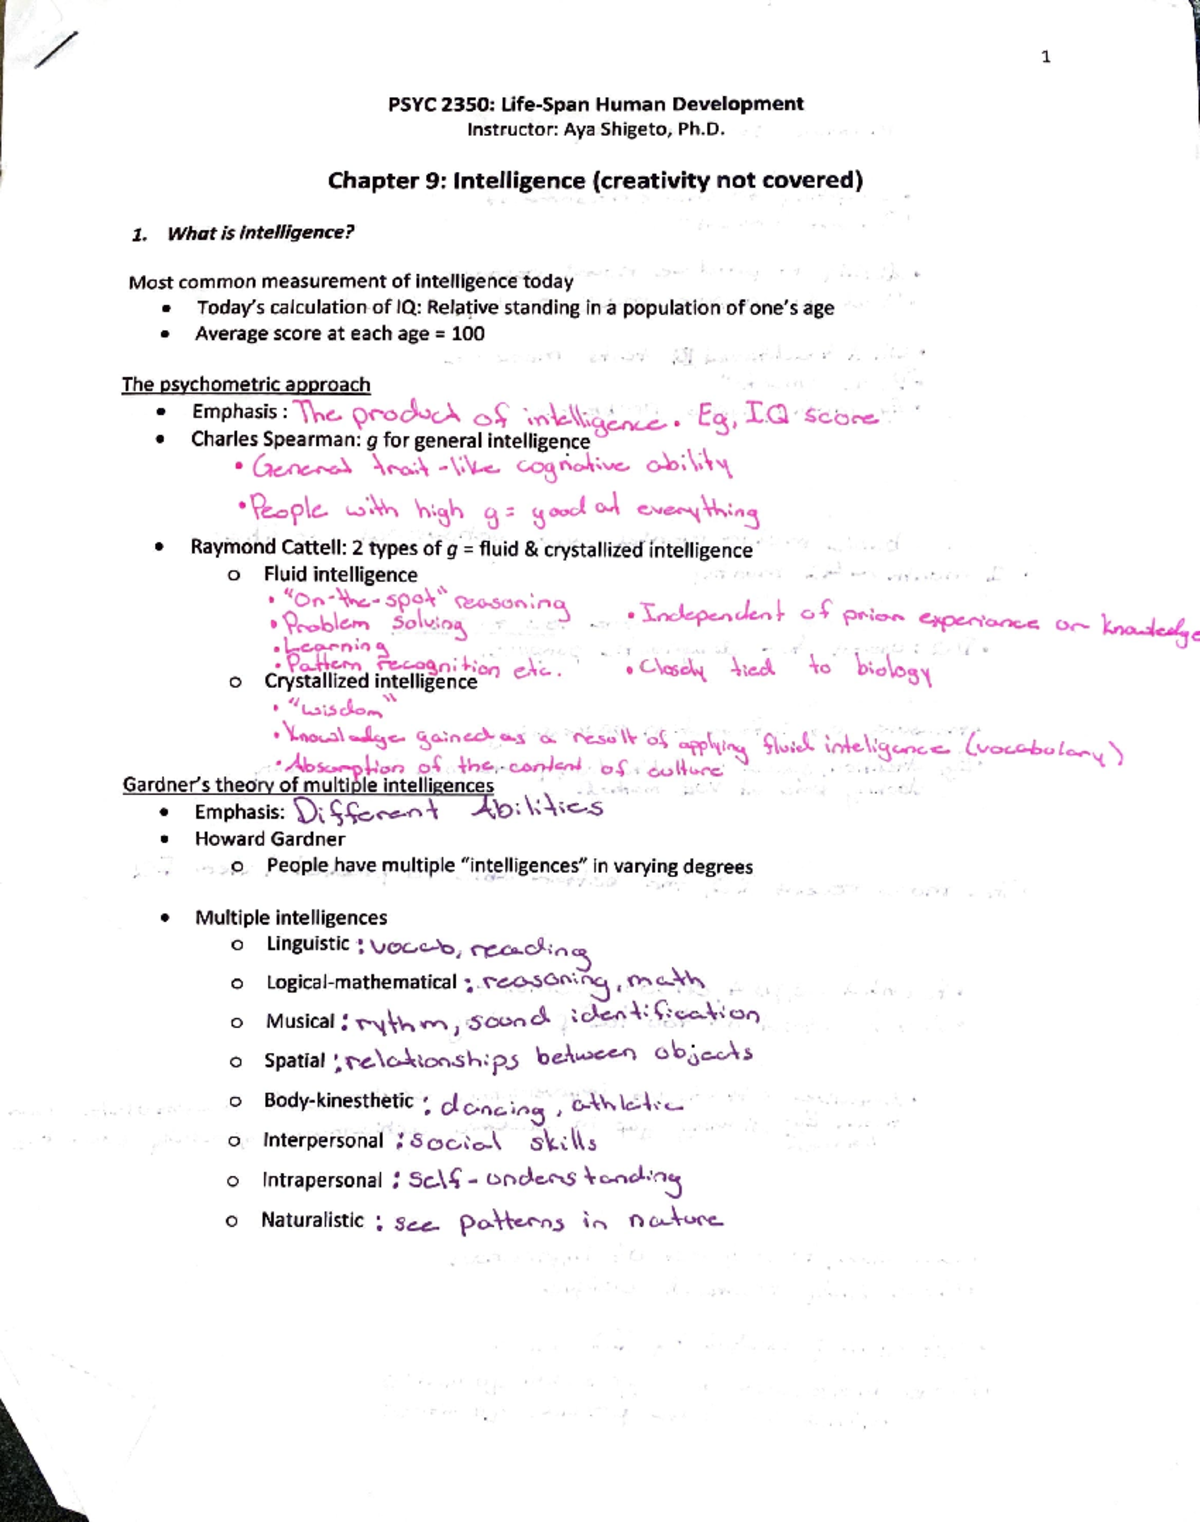 1
PSYC 2350: Life-Span Human Development
Instructor: Aya Shigeto, Ph.D.
Chapter 9: Intelligence (creativity not covered)
1. What is intelligence?
Most common measurement of intelligence today
• Today's calculation of IQ: Relative standing in a population of one's age
• Average score at each age = 100
The psychometric approach
• Emphasis : The product of intelligence. Eg, I.Q score
• Charles Spearman: g for general intelligence
• General trait-like cognative ability
• People with high g = good at everything
• Raymond Cattell: 2 types of g = fluid & crystallized intelligence
o Fluid intelligence
• "On-the-spot" reasoning
• Problem Solving
• Learning
• Pattern recognition etc.
• Independent of prior experiance or knowledge
• Closely tied to biology
o Crystallized intelligence
• "wisdom"
• Knowledge gained as a result of applying fluid inteligence (vocabulary)
• Absorption of the content of culture
Gardner's theory of multiple intelligences
• Emphasis: Different Abilities
• Howard Gardner
o People have multiple "intelligences" in varying degrees
• Multiple intelligences
o Linguistic : vocab, reading
o Logical-mathematical : reasoning, math
o Musical : rythm, sound identification
o Spatial : relationships between objects
o Body-kinesthetic : dancing, athletic
o Interpersonal : social skills
o Intrapersonal : Self-understanding
o Naturalistic : see patterns in nature